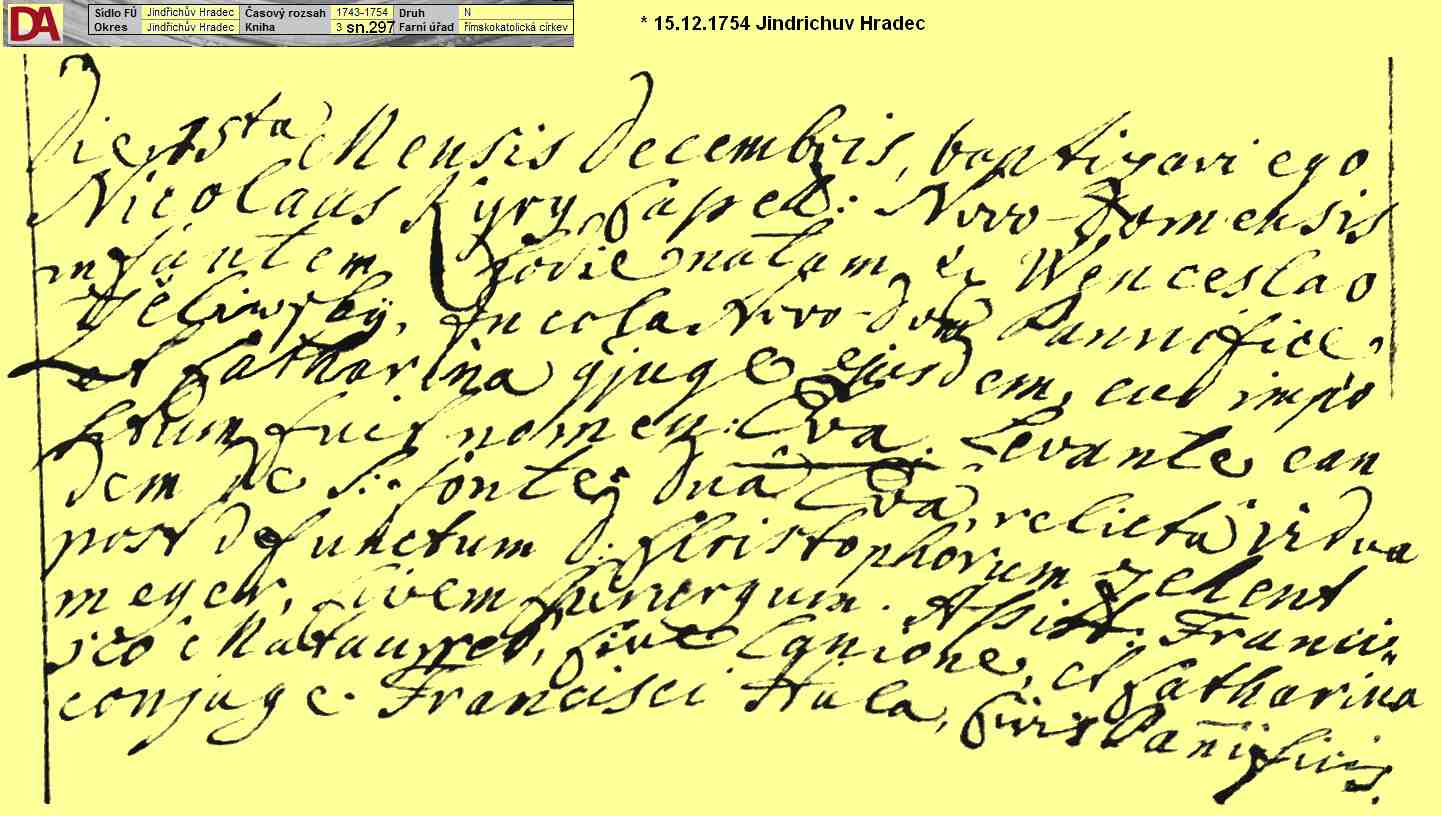 Sídlo FÚ Jindřichův Hradec Časový rozsah 1743-1754 Druh N
Okres Jindřichův Hradec Kniha 3 sn.297 Farní úřad římskokatolická církev
DA
* 15.12.1754 Jindrichuv Hradec
Die 15ta Mensis Decembris, baptizavi ego
Nicolaus Kyry Capel: Novo-Domensis
infantem hodie natam ex Wenceslao
Incola Novo-Dom Pannifice,
et Catharina cjuge ejusdem, cui impo
situm fuit nomen: Eva. Levante ean
dem de S: fonte dnâ Eva, relictâ vidua
post defunctum d. Christophorum Zehent
meyer, Civem
sco Civè Lanione, et Catharina
conjuge Francisci Hula, Civis Pañificis.